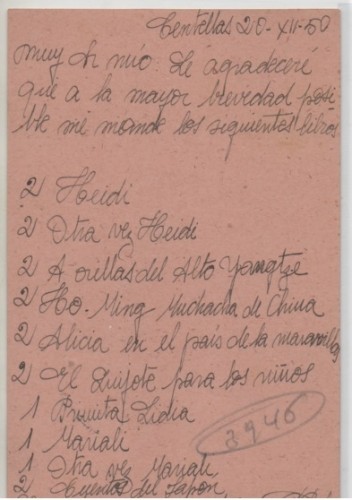 Centellas 20-XII-50
muy Sr mío: Le agradeceré
que a la mayor brevedad posi
ble me mande los siguientes libros
2 Heidi
2 Otra vez Heidi
2 A orillas del Alto Yangtze
2 Ho-Ming Muchacha de China
2 Alicia en el país de la maravillas
2 El Quijote para los niños
1 Lidia
1 Mariali
3946
1 Otra vez Mariali
2 Cuentos del Japón